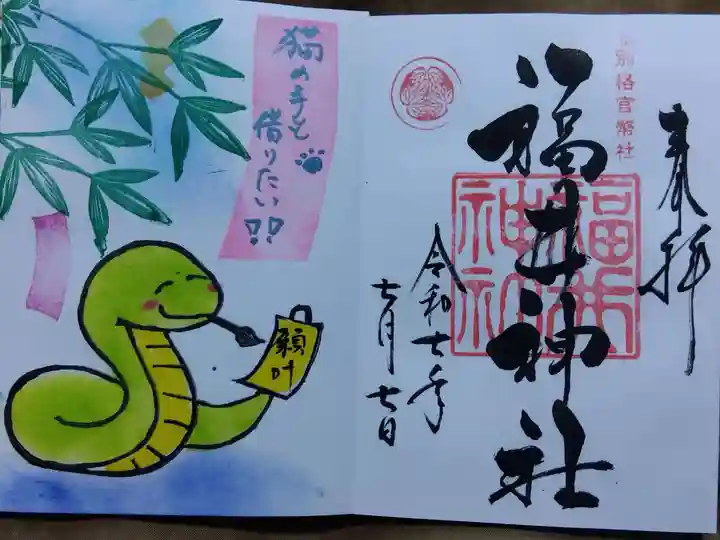 奉拝
別格官幣社
福井神社
福井神社
令和七年
七月七日
猫の手も
借りたい!!
願叶